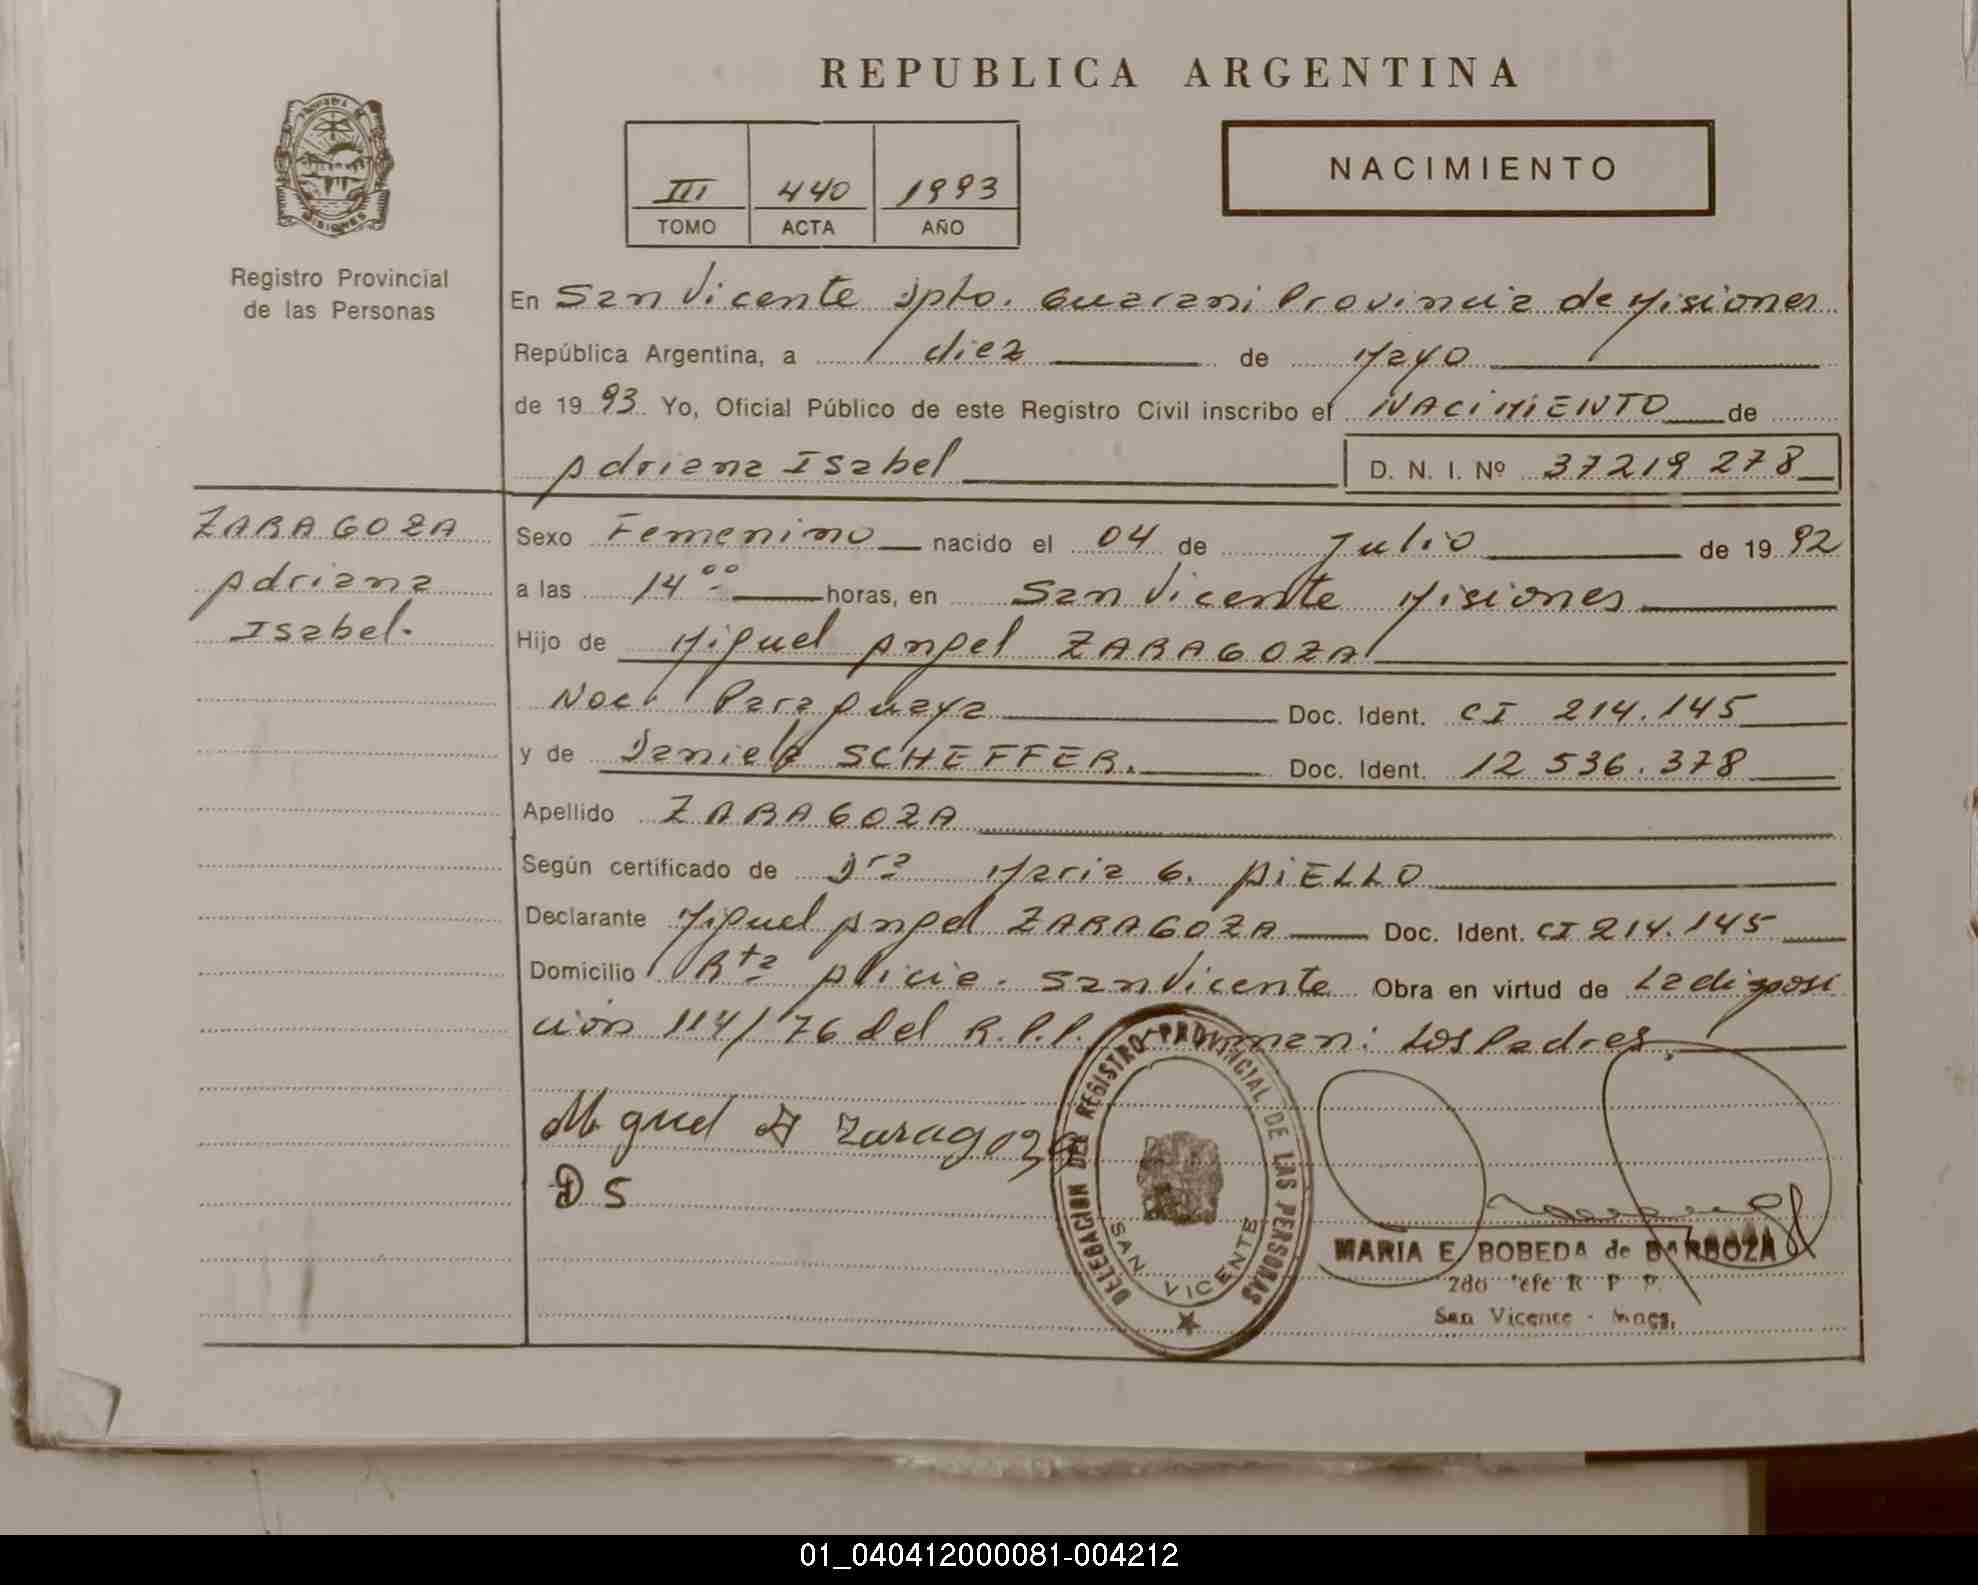 REPUBLICA ARGENTINA
NACIMIENTO
III 440 1993
TOMO ACTA AÑO
MISIONES
Registro Provincial
de las Personas
En San Vicente Dpto. Guarani Provincia de Misiones
República Argentina, a diez de Mayo
de 1993 Yo, Oficial Público de este Registro Civil inscribo el NACIMIENTO de
Adriana Isabel D. N. I. Nº 37219278
ZARAGOZA
Adriana
Isabel.
Sexo Femenino nacido el 04 de Julio de 1992
a las 14 00 horas, en San Vicente Misiones
Hijo de Miguel Angel ZARAGOZA
Nac. Paraguaya Doc. Ident. CI 214.145
y de Daniela SCHEFFER. Doc. Ident. 12 536.378
Apellido ZARAGOZA
Según certificado de Dra Maria G. AiELLO
Declarante Miguel Angel ZARAGOZA Doc. Ident. CI 214.145
Domicilio Rta Alicia. San Vicente Obra en virtud de La disposi
ción 114/76 del R.P.P. Firman: Los Padres.
Miguel A Zaragoza
D S
DELEGACION DEL REGISTRO PROVINCIAL DE LAS PERSONAS
SAN VICENTE
MARIA E. BOBEDA de BARBOZA
2do Jefe R P P.
San Vicente - Mnes.
01_040412000081-004212